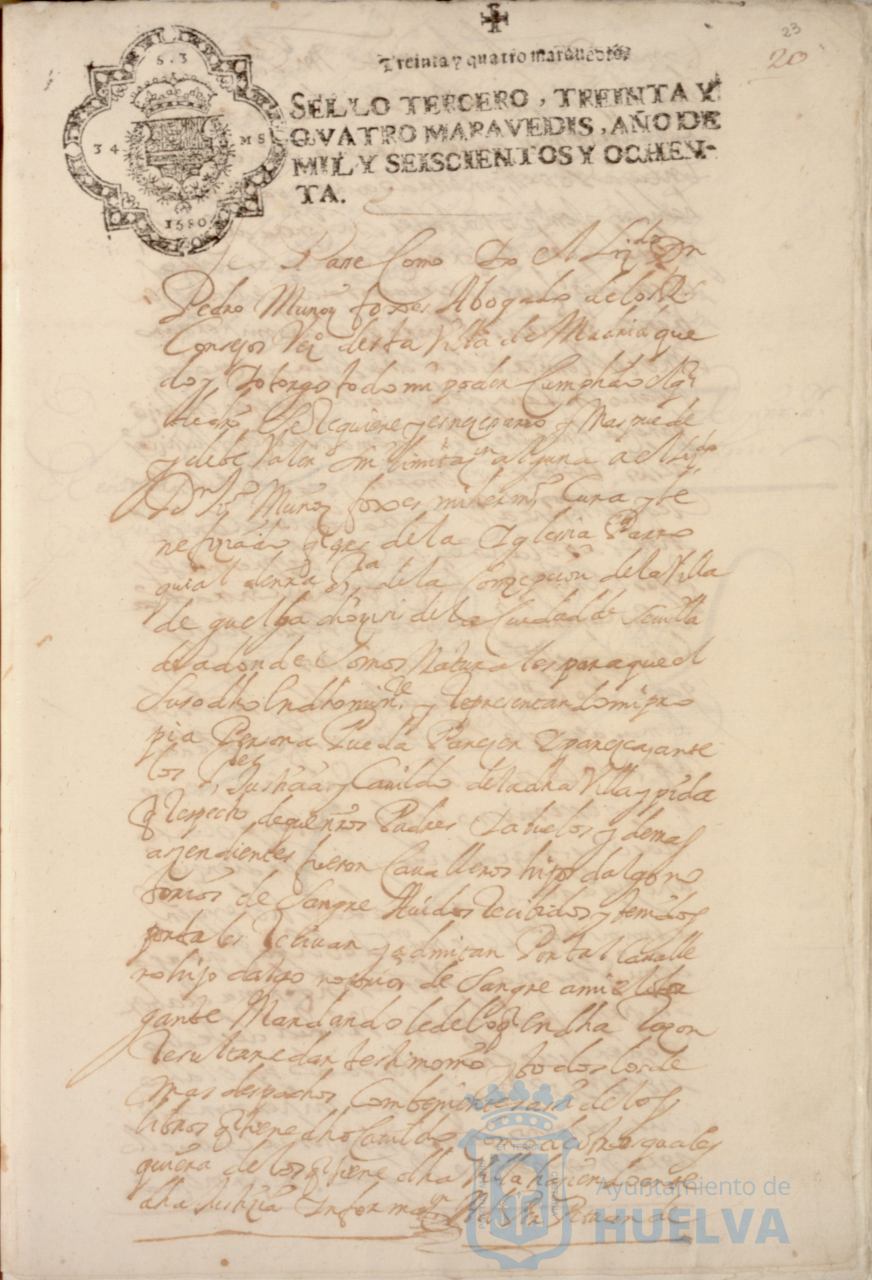 23
20
Treinta y quatro maravedis
SELLO TERCERO, TREINTA Y
QVATRO MARAVEDIS, AÑO DE
MIL Y SEISCIENTOS Y OCHEN-
TA.
S. 3
34 MS
1680
Como Yo el Lizdo Dn
Pedro Muñoz foxes Abogado de los Rs
Consejos Vezo desta Villa de Madrid que
doy y otorgo todo mi poder Cumplido el qe
de dro se Requiere y es nezesario y Mas puede
y debe Valer sin limitazn alguna a el Lizdo
Dn Muñoz foxes mi hermo Cura y be
nefiziado de la Iglesia Parro
quial de nra Sra de la Conzepcion de la Villa
de guelba de la Ciudad de Sevilla
de adonde somos Naturales para que el
Suso dho en dho mi nre y Representando mi pro
pia Persona Pueda Parezer y parezca ante
los Justizia y Cavildo de la dha Villa y pida
q Respecto de que nros Padres Abuelos y demas
aszendientes fueron Cavalleros hijos dalgo no
torios de Sangre thenidos Recibidos y
por tales Recivan y admitan Por tal Cavalle
ro hijo dalgo notorio de Sangre a mi el otor
gante Mandandole de lo q en dha Razon
Resultare dar testimonio y todos los de
mas despachos Combenientes de los
libros q tiene dho Cavildo como de otros quales
quiera de los q tiene dha Villa haziendo ante
dha Justizia Informazn
Ayuntamiento de
HUELVA